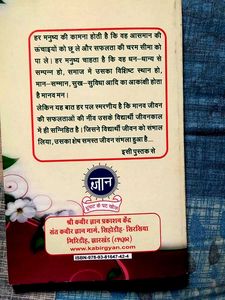 हर मनुष्य की कामना होती है कि वह आसमान की
ऊंचाइयों को छू ले और सफलता की चरम सीमा को
पा ले। हर मनुष्य चाहता है कि वह धन-धान्य से
सम्पन्न हो, समाज में उसका विशिष्ट स्थान हो,
मान-सम्मान, सुख-सुविधा आदि का आकांक्षी होता
है मानव मन।
लेकिन यह बात हर पल स्मरणीय है कि मानव जीवन
की सफलताओं की नींव उसके विद्यार्थी जीवनकाल
में ही सन्निहित है। जिसने विद्यार्थी जीवन को संभाल
लिया, उसका शेष समस्त जीवन संभला हुआ है...
इसी पुस्तक से
ज्ञान
घूंघट के पट खोल
श्री कबीर ज्ञान प्रकाशन केंद्र
संत कबीर ज्ञान मार्ग, सिहोडीह- सिरसिया
गिरिडीह, झारखंड
www.kabirgyan.com
ISBN-978-93-81647-42-4